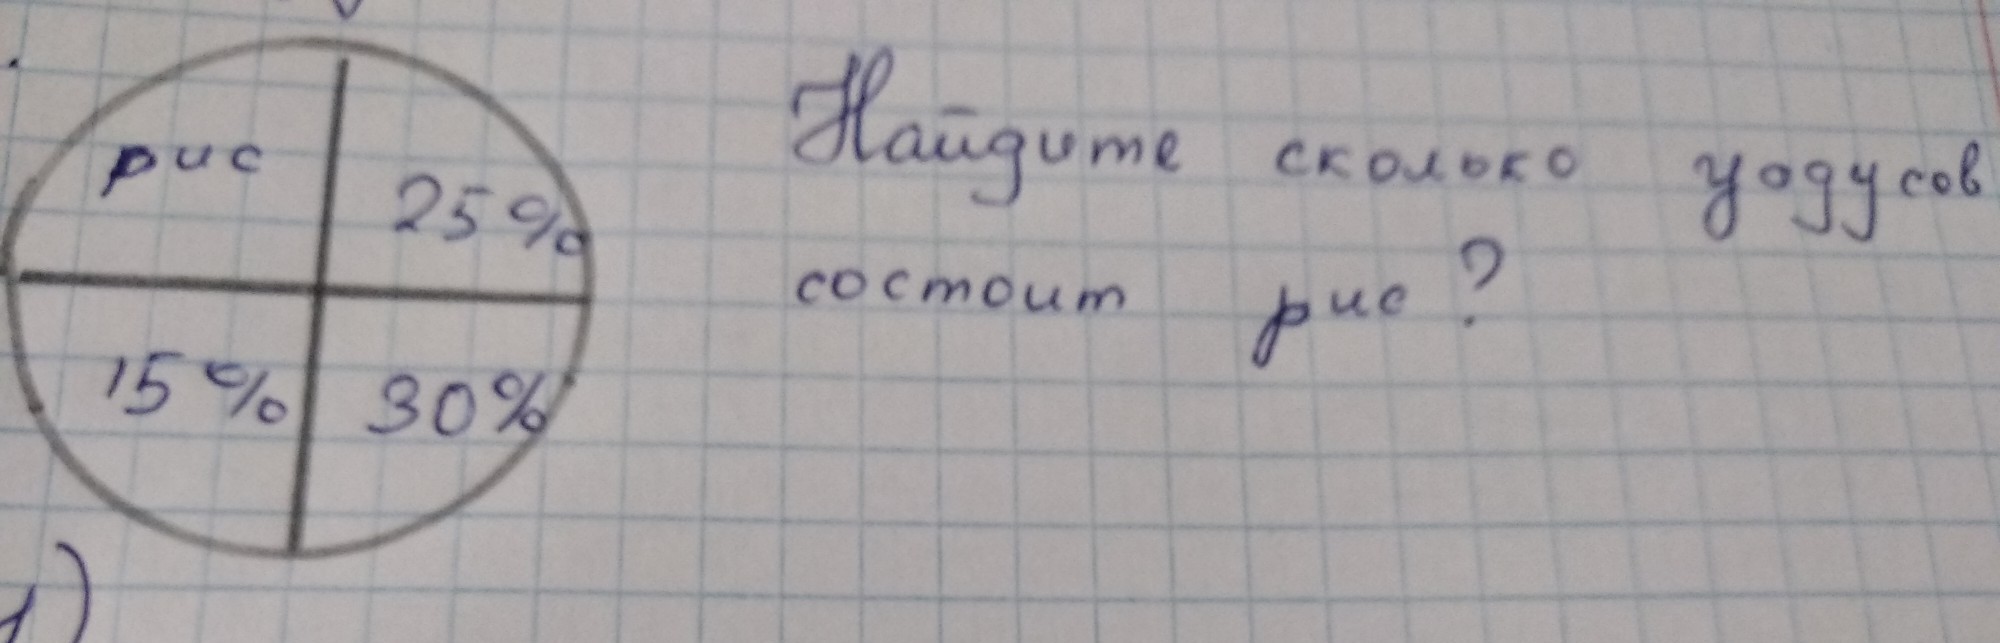 рис
25%
15%
30%
Найдите сколько уодусов
состоит рис?
1)